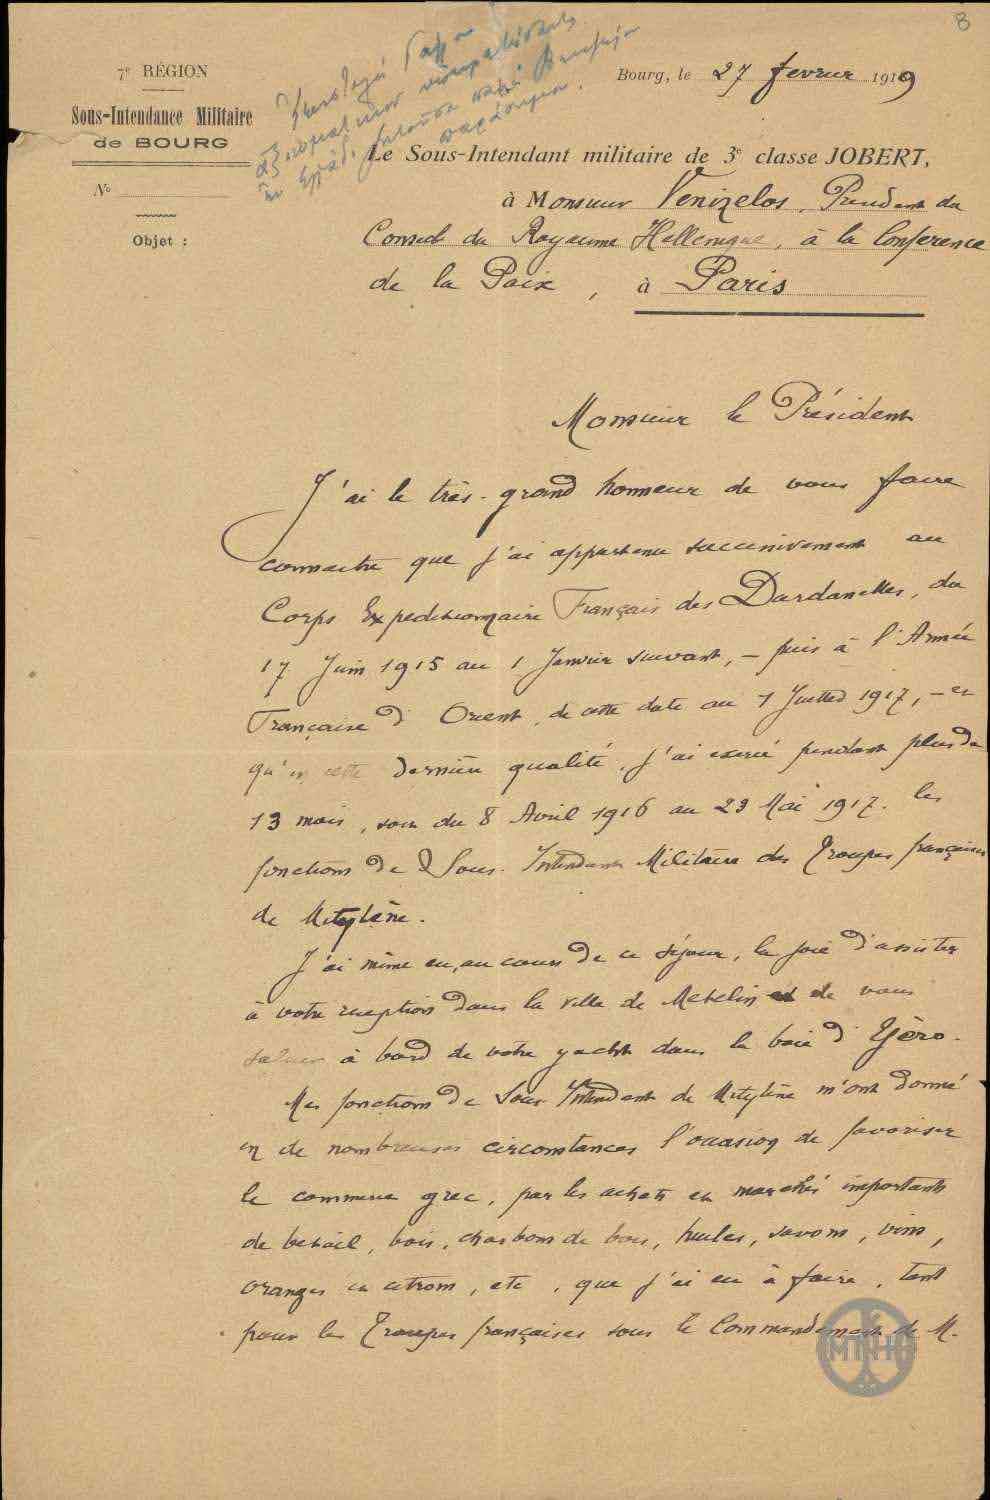 8
7e RÉGION
Sous-Intendance Militaire
de BOURG
No
Objet :
Ἐπιστολὴ Γάλλου
παράσημον.
Bourg, le 27 fevrier 1919
Le Sous-Intendant militaire de 3e classe JOBERT,
à Monsieur Venizelos, President du
Conseil du Royaume Hellenique, à la Conference
de la Paix, à Paris
Monsieur le Président
J'ai le très-grand honneur de vous faire
connaitre que j'ai appartenu successivement au
Corps Expeditionnaire Français des Dardanelles, du
17 Juin 1915 au 1 Janvier suivant, – puis à l'Armée
Française d'Orient, de cette date au 1 Juillet 1917, – et
qu'en cette dernière qualité, j'ai exercé pendant plus de
13 mois, soit du 8 Avril 1916 au 23 Mai 1917, les
fonctions de Sous-Intendant Militaire des Troupes françaises
de Mitylène.
J'ai même eu, au cours de ce séjour, la joie d'assister
à votre reception dans la ville de Metelin et de vous
saluer à bord de votre yacht dans la baie d'Yéro.
Mes fonctions de Sous-Intendant de Mitylène m'ont donné
en de nombreuses circonstances l'occasion de favoriser
le commerce grec, par les achats et marchés importants
de betail, bois, charbons de bois, huiles, savons, vins,
oranges et citrons, etc, que j'ai eu à faire, tant
pour les Troupes françaises sous le Commandement de M.